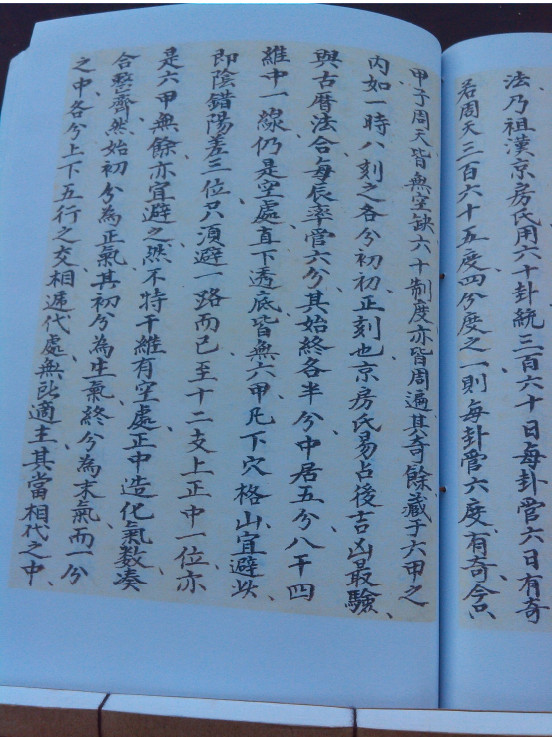 法乃祖漢京房氏用六十卦統三百六十日每卦管六日有奇
若周天三百六十五度四分度之一則每卦管六度有奇今只
甲子周天皆無空缺六十制度亦皆周遍其奇餘藏于六甲之
內如一時八刻之各分初初正刻也京房氏易占後吉凶最驗
與古曆法合每辰率管六分其始終各半分中居五分八干四
維中一線仍是空處直下透底皆無六甲凡下穴格山宜避此
即陰錯陽差三位只須避一路而已至十二支上正中一位亦
是六甲無餘亦宜避之然不特干維有空處正中造化氣數湊
合整齊然始初分為正氣其初分為生氣終分為末氣而一分
之中各分上下五行之交相遞代處無所適主其當相代之中